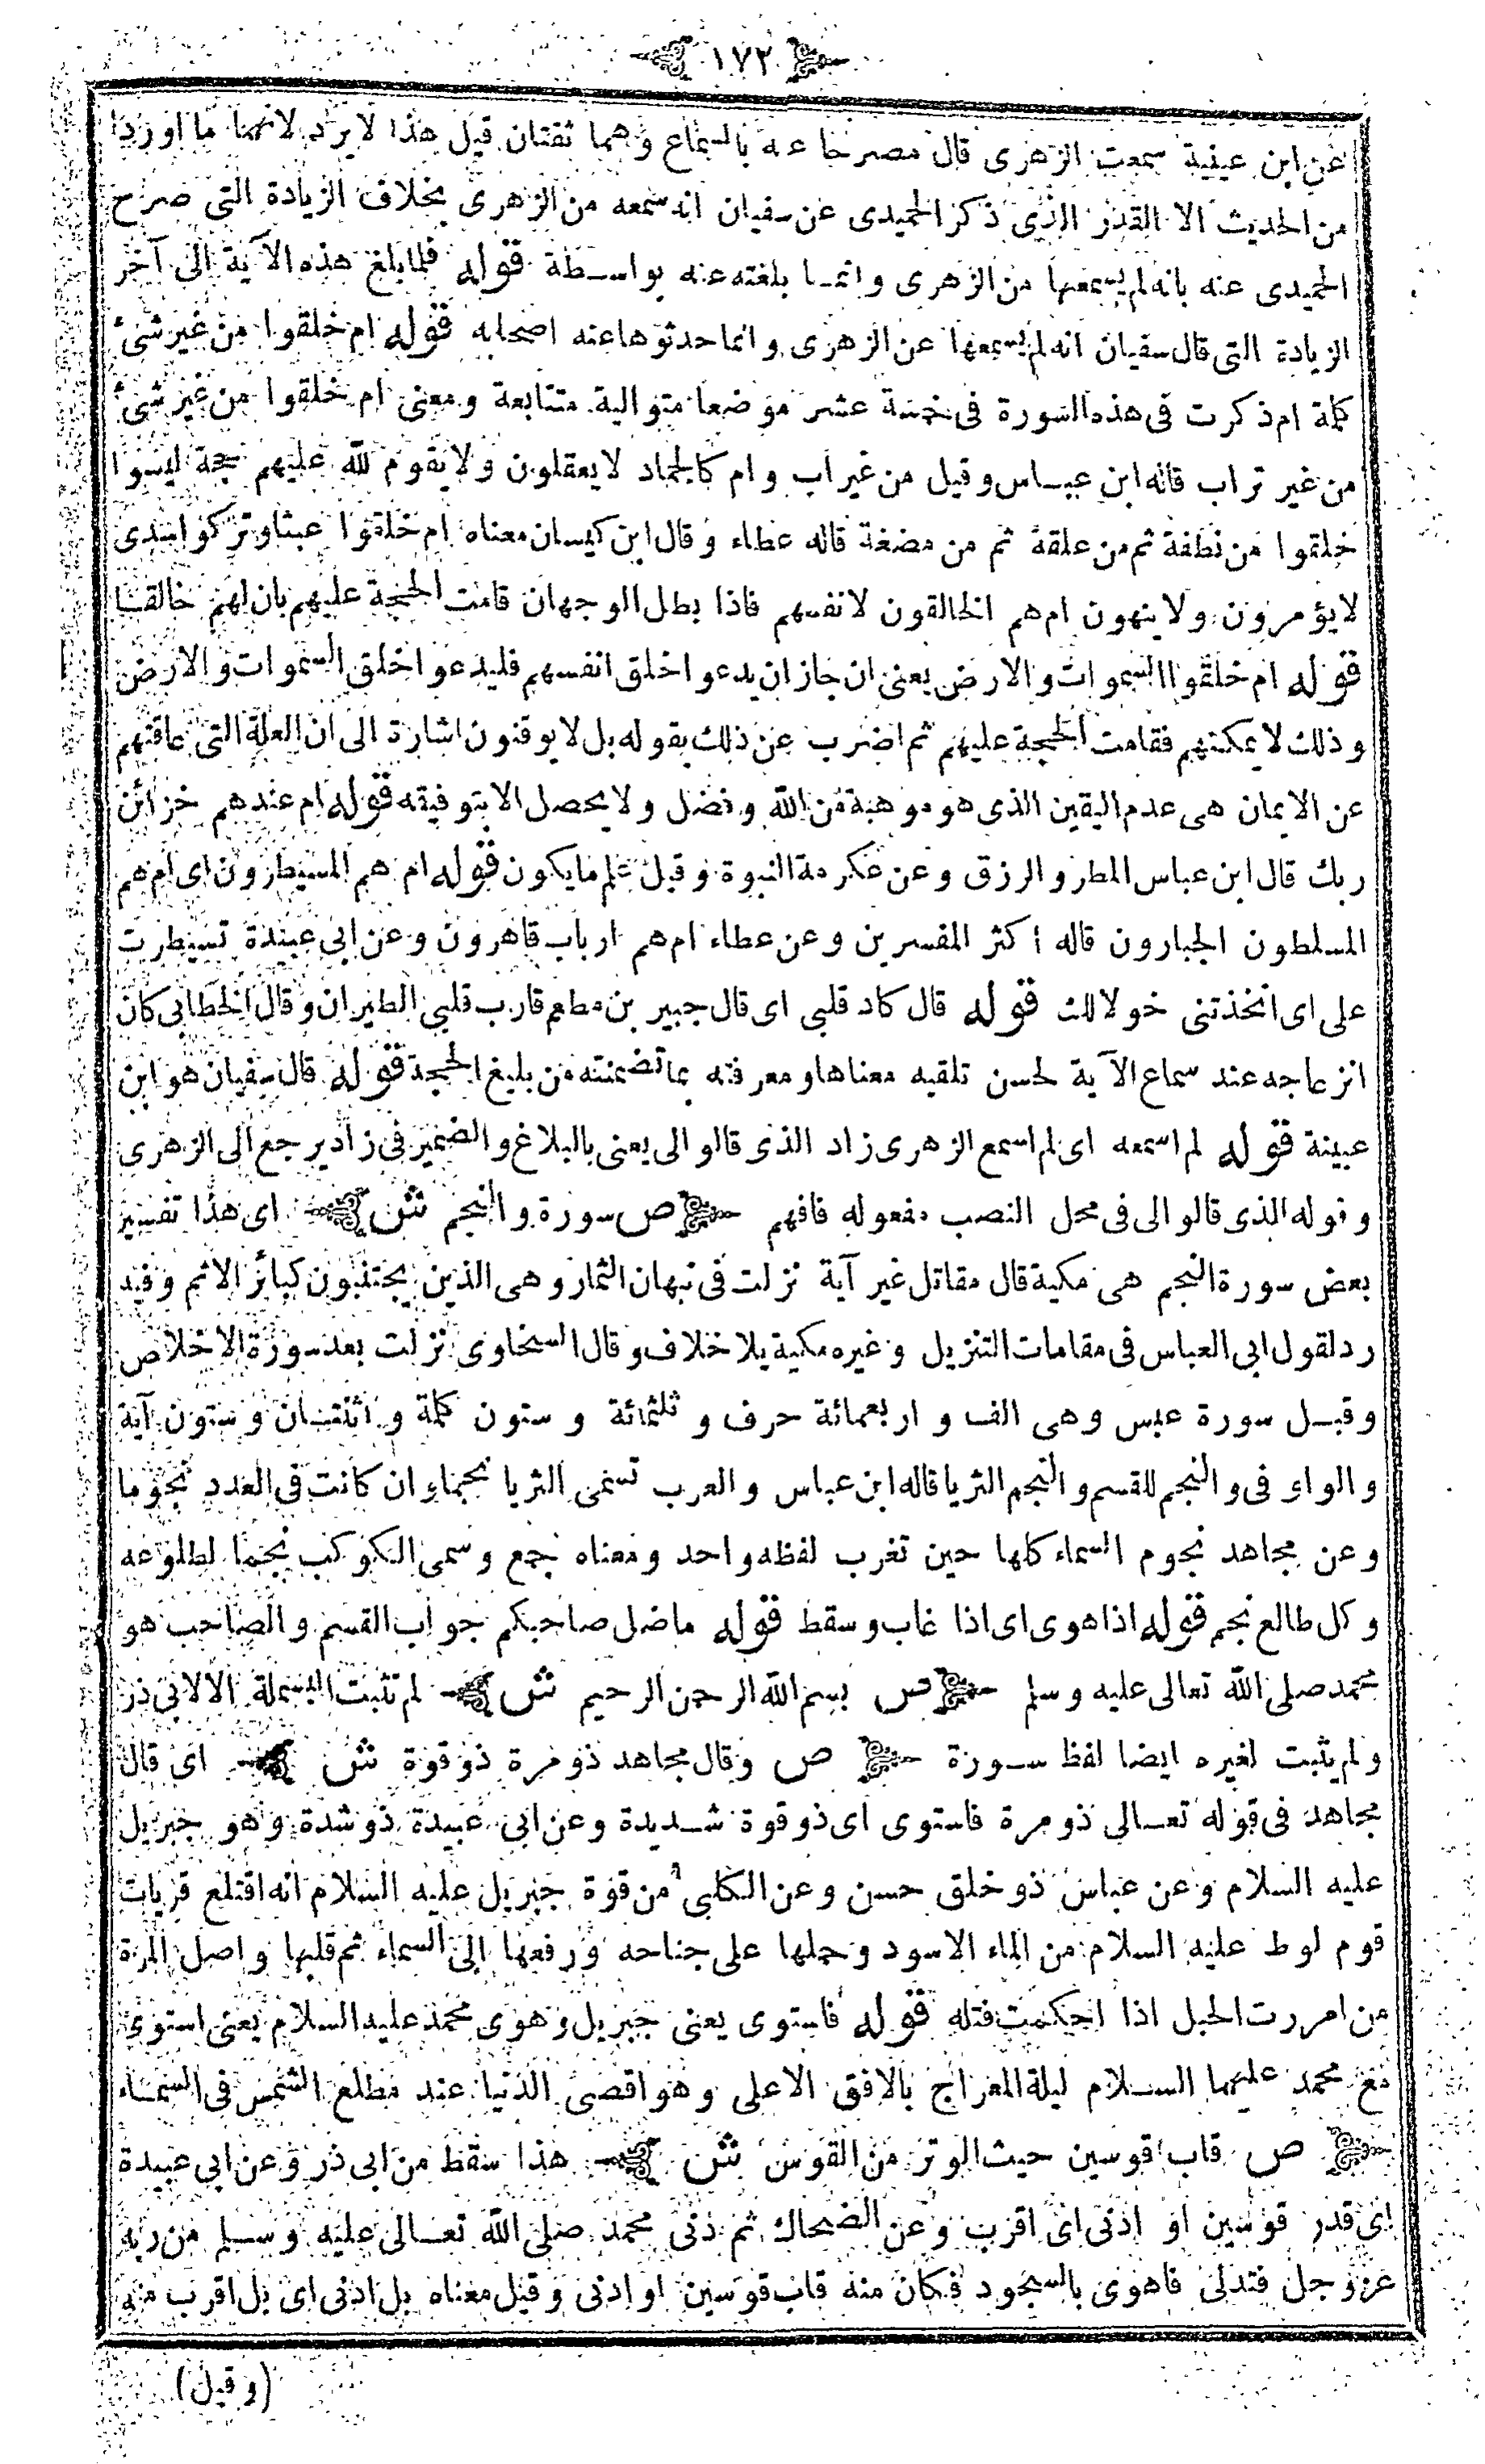 ١٧٢
عن ابن عيينة سمعت الزهرى قال مصرحا عنه بالسماع وهما ثقتان قيل هذا لا يرد لانهما ما اوردا
من الحديث الا القدر الذى ذكر الحميدى عن سفيان انه سمعه من الزهرى بخلاف الزيادة التى صرح
الحميدى عنه بانه لم يسمعها من الزهرى وانمـا بلغته عنه بواسـطة قوله فلما بلغ هذه الآية الى آخر
الزيادة التى قال سفيان انه لم يسمعها عن الزهرى وانما حدثوها عنه اصحابه قوله ام خلقوا من غير شئ
كلمة ام ذكرت فى هذه السورة فى خمسة عشر موضعا متوالية متتابعة ومعنى ام خلقوا من غير شئ
من غير تراب قاله ابن عبـاس وقيل من غير اب وام كالجماد لا يعقلون ولا يقوم لله عليهم حجة ليسوا
خلقوا من نطفة ثم من علقة ثم من مضغة قاله عطاء وقال ابن كيسان معناه ام خلقوا عبثا وتركوا سدى
لا يؤمرون ولا ينهون ام هم الخالقون لانفسهم فاذا بطل الوجهان قامت الحجة عليهم بان لهم خالقـا
قوله ام خلقوا السموات والارض يعنى ان جاز ان يدعوا خلق انفسهم فليدعوا خلق السموات والارض
وذلك لا يمكنهم فقامت الحجة عليهم ثم اضرب عن ذلك بقوله بل لا يوقنون اشارة الى ان العلة التى عاقتهم
عن الايمان هى عدم اليقين الذى هو موهبة من الله وفضل ولا يحصل الا بتوفيقه قوله ام عندهم خزائن
ربك قال ابن عباس المطر والرزق وعن عكرمة النبوة وقيل علم ما يكون قوله ام هم المسيطرون اى ام هم
المسلطون الجبارون قاله اكثر المفسرين وعن عطاء ام هم ارباب قاهرون وعن ابى عبيدة تسيطرت
على اى اتخذتنى خولا لك قوله قال كاد قلبى اى قال جبير بن مطعم قارب قلبى الطيران وقال الخطابى كان
انزعاجه عند سماع الآية لحسن تلقيه معناها ومعرفته بما تضمنته من بليغ الحجة قوله قال سفيان هو ابن
عيينة قوله لم اسمعه اى لم اسمع الزهرى زاد الذى قالوا لى يعنى بالبلاغ والضمير فى زاد يرجع الى الزهرى
وقوله الذى قالوا لى فى محل النصب مفعوله فافهم ص سورة والنجم ش اى هذا تفسير
بعض سورة النجم هى مكية قال مقاتل غير آية نزلت فى نبهان التمار وهى الذين يجتنبون كبائر الاثم وفيه
رد لقول ابى العباس فى مقامات التنزيل وغيره مكية بلا خلاف وقال السخاوى نزلت بعد سورة الاخلاص
وقبـل سورة عبس وهى الف واربعمائة حرف وثلثمائة وستون كلمة واثنتـان وستون آية
والواو فى والنجم للقسم والنجم الثريا قاله ابن عباس والعرب تسمى الثريا نجما وان كانت فى العدد نجوما
وعن مجاهد نجوم السماء كلها حين تغرب لفظه واحد ومعناه جمع وسمى الكوكب نجما لطلوعه
وكل طالع نجم قوله اذا هوى اى اذا غاب وسقط قوله ما ضل صاحبكم جواب القسم والصاحب هو
محمد صلى الله تعالى عليه وسلم ص بسم الله الرحمن الرحيم ش لم تثبت البسملة الا لابى ذر
ولم يثبت لغيره ايضا لفظ سـورة ص وقال مجاهد ذو مرة ذو قوة ش اى قال
مجاهد فى قوله تعـالى ذو مرة فاستوى اى ذو قوة شـديدة وعن ابى عبيدة ذو شدة وهو جبريل
عليه السلام وعن عباس ذو خلق حسن وعن الكلبى من قوة جبريل عليه السلام انه اقتلع قريات
قوم لوط عليه السلام من الماء الاسود وحملها على جناحه ورفعها الى السماء ثم قلبها واصل المرة
من امررت الحبل اذا احكمت فتله قوله فاستوى يعنى جبريل وهوى محمد عليه السلام يعنى استوى
مع محمد عليهما السـلام ليلة المعراج بالافق الاعلى وهو اقصى الدنيا عند مطلع الشمس فى السمـاء
ص قاب قوسين حيث الوتر من القوس ش هذا سقط من ابى ذر وعن ابى عبيدة
اى قدر قوسين او ادنى اى اقرب وعن الضحاك ثم دنى محمد صلى الله تعـالى عليه وسـلم من ربه
عز وجل فتدلى فاهوى بالسجود فكان منه قاب قوسين او ادنى وقيل معناه بل ادنى اى بل اقرب منه
(وقيل)